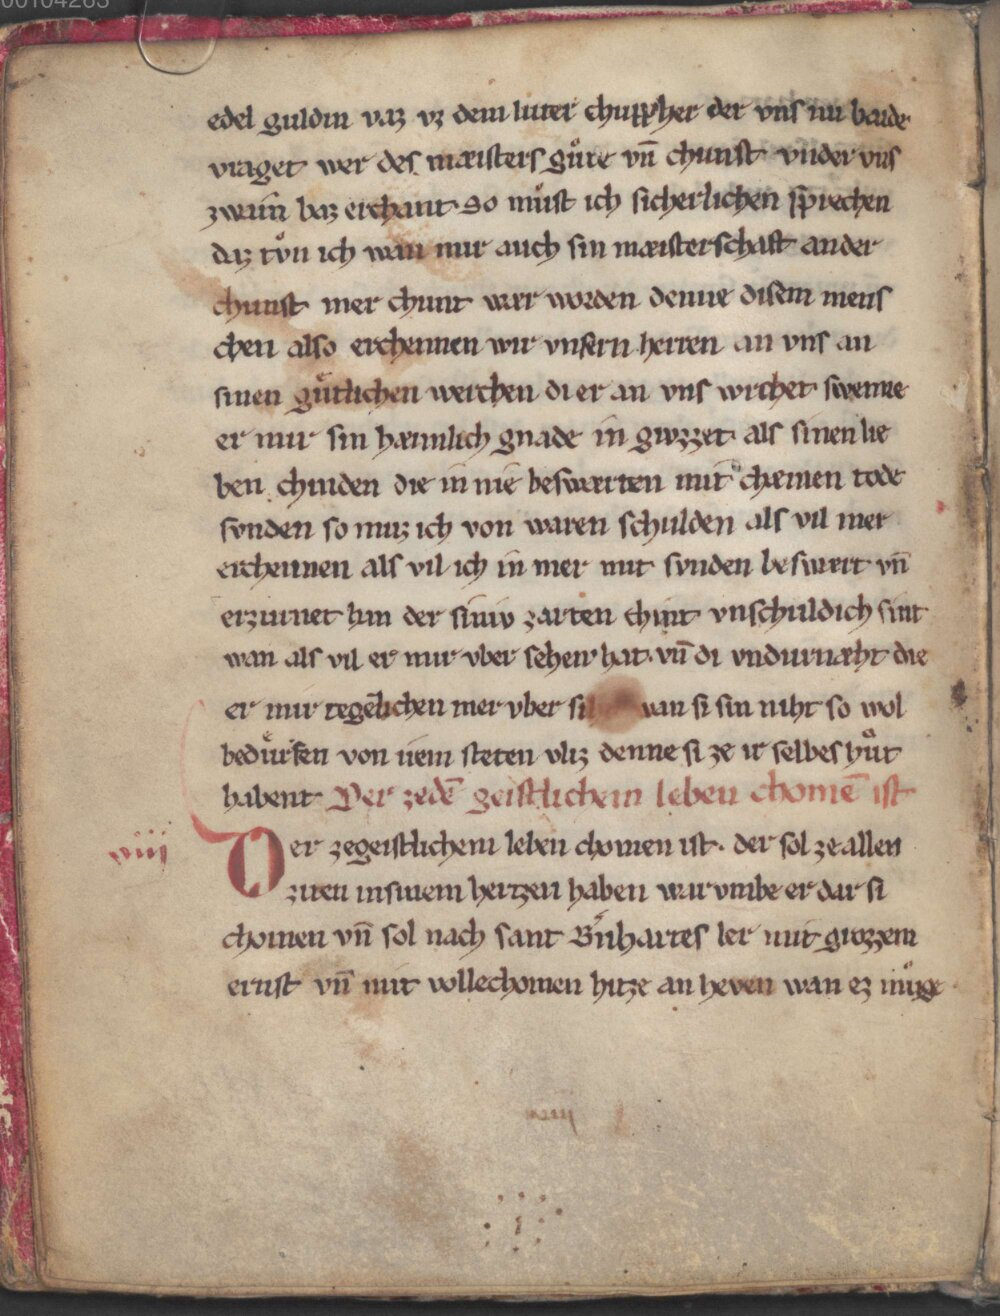 00104263
edel guldin vaz vz dem luter chuppher der vns nu baide
vraget wer des mæisters gůte vn̄ chunst vnder vns
zwain baz erchant. So můst ich sicherlichen sprechen
daz tůn ich wan mir auch sin mæisterschaft ander
chunst mer chunt wær worden denne disem mens
chen also erchennen wir vnsern herren an vns an
sinen gůtlichen werchen di er an vns wrchet swenne
er mir sin hæimlich gnade in giuzzet als sinen lie
ben chinden die in nie beswærten mit chæinen tode
svnden so muz ich von waren schulden als vil mer
erchennen als vil ich in mer mit svnden beswært vn̄
erzurnet han der siniv zarten chint vnschuldich sint
wan als vil er mir vber sehen hat. vn̄ di vndurnæht die
er mir tegēlichen mer vber wan si sin niht so wol
bedůrfen von iem steten vliz denne si ze ir selbes hůt
habent Der zedē geistlichem leben chomē ist
Der zegeistlichem leben chomen ist. der sol ze allen
ziten in sinem hertzen haben war vmbe er dar si
chomen vn̄ sol nach sant Bn̄hartes ler mit grozzem
ernst vn̄ mit vollechomen hitze an heven wan ez můge